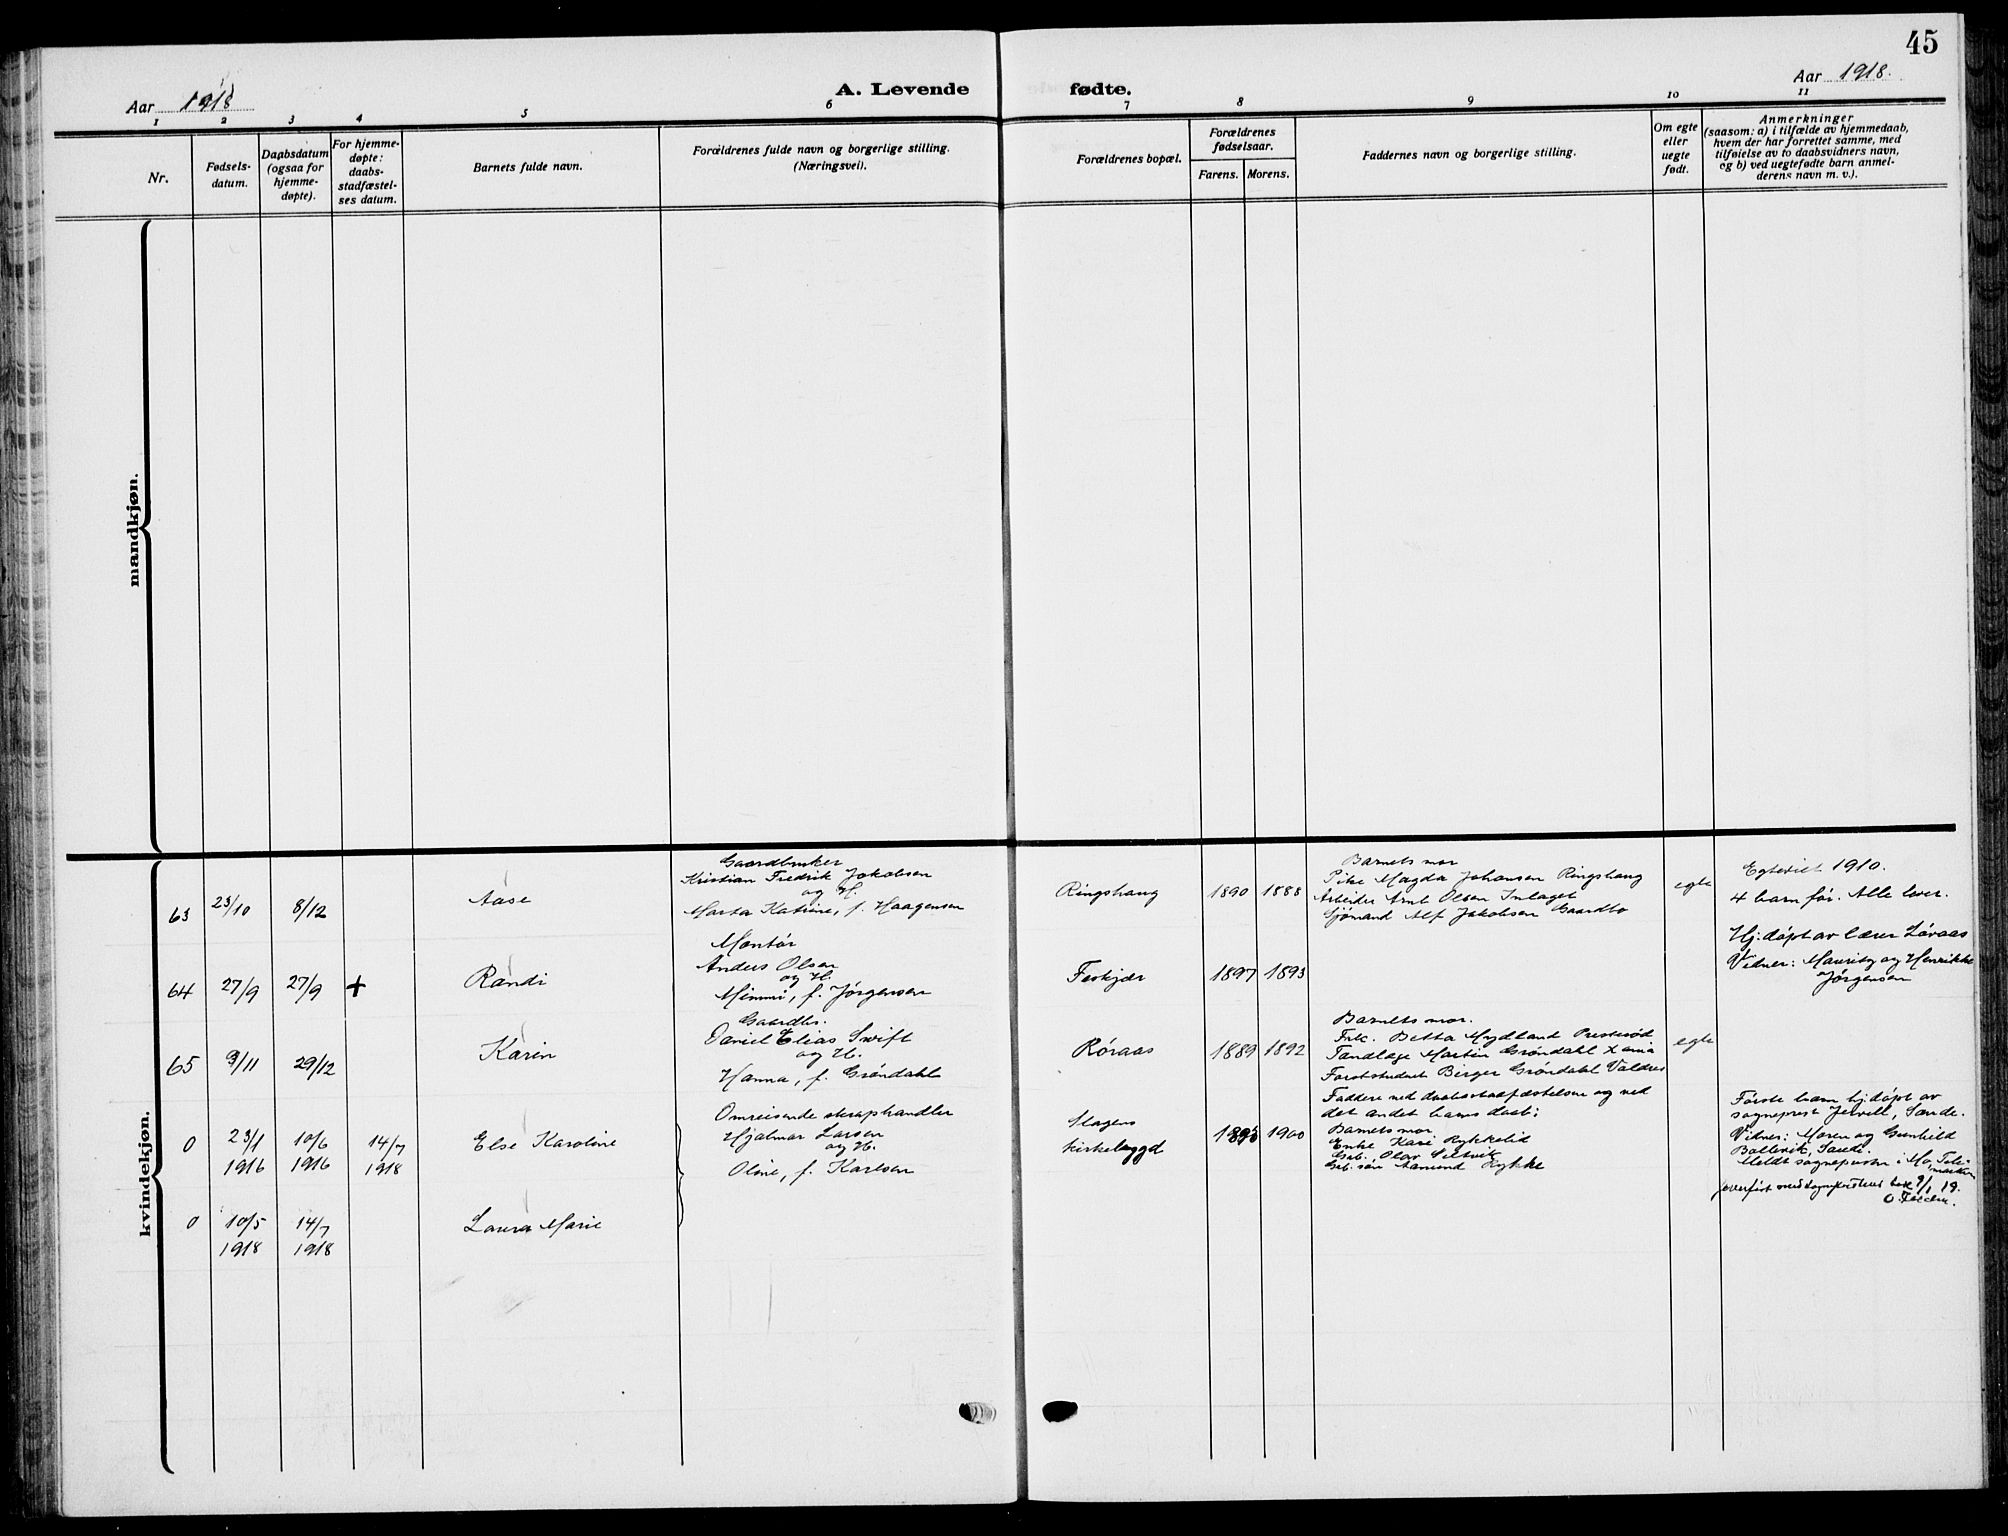 45
Aar 1918
A. Levende fødte.
Aar 1918.
1 2 3 4 5 6 7 8 9 10 11
Nr.
Fødsels-
datum.
Daabsdatum
(ogsaa for
hjemme-
døpte).
For hjemme-
døpte:
daabs-
stadfæstel-
ses datum.
Barnets fulde navn.
Forældrenes fulde navn og borgerlige stilling.
(Næringsvei).
Forældrenes bopæl.
Forældrenes
fødselsaar.
Farens. Morens.
Faddernes navn og borgerlige stilling.
Om egte
eller
uegte
født.
Anmerkninger
(saasom: a) i tilfælde av hjemmedaab,
hvem der har forrettet samme, med
tilføielse av to daabsvidners navn,
og b) ved uegtefødte barn anmel-
derens navn m. v.).
mandkjøn.
kvindekjøn.
63 23/10 8/12
Aase
Gaardbruker
Kristian Fredrik Jakobsen
og H.
Marta Katrine, f. Haagensen
Ringshaug
1890 1888
Barnets mor
Pike Magda Johansen Ringshaug
Arbeider Arnt Olsen
Sjømand Alf Jakobsen Gaardbo
egte
Egteviet 1910.
4 barn før. Alle lever.
64 27/9 27/9 +
Randi
Montør
Anders Olsen
og H.
Mimmi, f. Jørgensen
Feskjær
1897 1893
Hj:døpt av lærer Løraas
Vidner: Mauritz og Henrikke
Jørgensen
65 9/11 29/12
Karin
Gaardbr.
Daniel Elias Swift
og H.
Hanna, f. Grøndahl
Røraas
1889 1892
Barnets mor.
Frk. Betta Mydland Presterød
Tandlæge Martin Grøndahl Xania
Forststudent Birger Grøndahl Valdres
egte
0 23/1 10/6 14/7
1916 1916 1918
Else Karoline
Omreisende skraphandler
Hjalmar Larsen
og H.
Oline, f. Karlsen
Slagens
kirkebygd
1895 1900
Faddere ved daabsstadfæstelsen og ved
det andet barns daab:
Barnets mor
Enke Kari Rykkelid
Gbr. Olav
Gbr. søn Aamund Rykke
Første barn hj:døpt av
sogneprest Jervell, Sande.
Vidner: Moren og Gunhild
Bollevik, Sande.
Meldt sognepresten i Mo, Tele-
marken
9/1 19.
0 10/5 14/7
1918 1918
Laura Marie